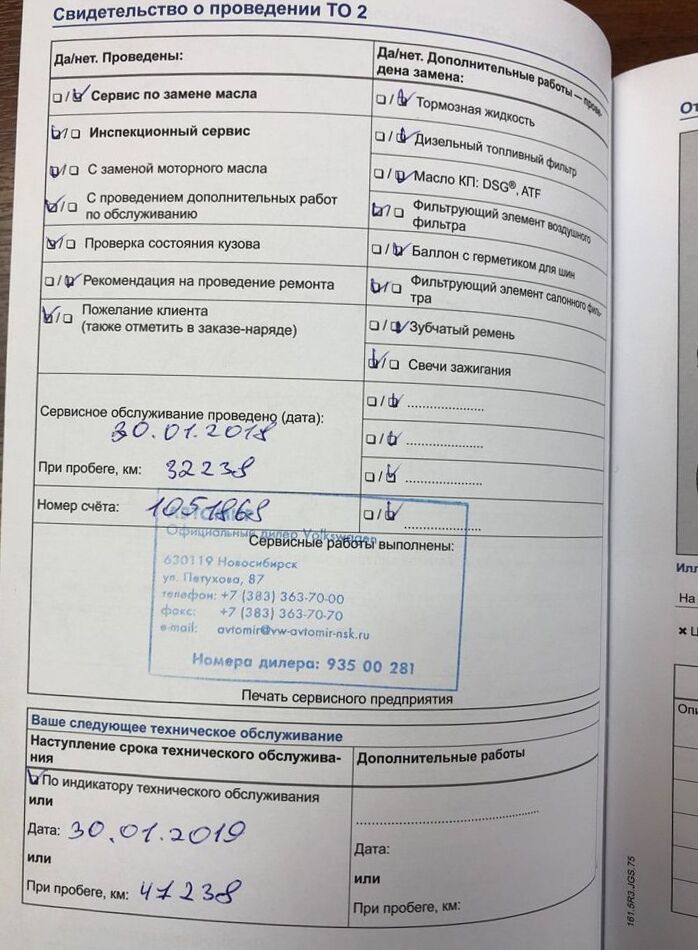 Свидетельство о проведении ТО 2
Да/нет. Проведены:
☐/☑ Сервис по замене масла
☑/☐ Инспекционный сервис
☑/☐ С заменой моторного масла
☑/☐ С проведением дополнительных работ
по обслуживанию
☑/☐ Проверка состояния кузова
☐/☑ Рекомендация на проведение ремонта
☑/☐ Пожелание клиента
(также отметить в заказе-наряде)
Сервисное обслуживание проведено (дата):
30.01.2018
При пробеге, км: 32238
Номер счёта: 1051868
Да/нет. Дополнительные работы — прове-
дена замена:
☐/☑ Тормозная жидкость
☐/☑ Дизельный топливный фильтр
☐/☑ Масло КП: DSG®, ATF
☑/☐ Фильтрующий элемент воздушного
фильтра
☐/☑ Баллон с герметиком для шин
☑/☐ Фильтрующий элемент салонного филь-
тра
☐/☑ Зубчатый ремень
☑/☐ Свечи зажигания
☐/☑ .....................
☐/☑ .....................
☐/☑ .....................
☐/☑ .....................
Сервисные работы выполнены:
Официальный дилер Volkswagen
630119 Новосибирск
ул. Петухова, 87
телефон: +7 (383) 363-70-00
факс: +7 (383) 363-70-70
e-mail: avtomir@vw-avtomir-nsk.ru
Номера дилера: 935 00 281
Печать сервисного предприятия
Ваше следующее техническое обслуживание
Наступление срока технического обслужива-
ния
☑ По индикатору технического обслуживания
или
Дата: 30.01.2019
или
При пробеге, км: 47238
Дополнительные работы
.....................
Дата:
или
При пробеге, км:
161.5R3.JGS.75
От
Илл
На
✖ Ц
Опи